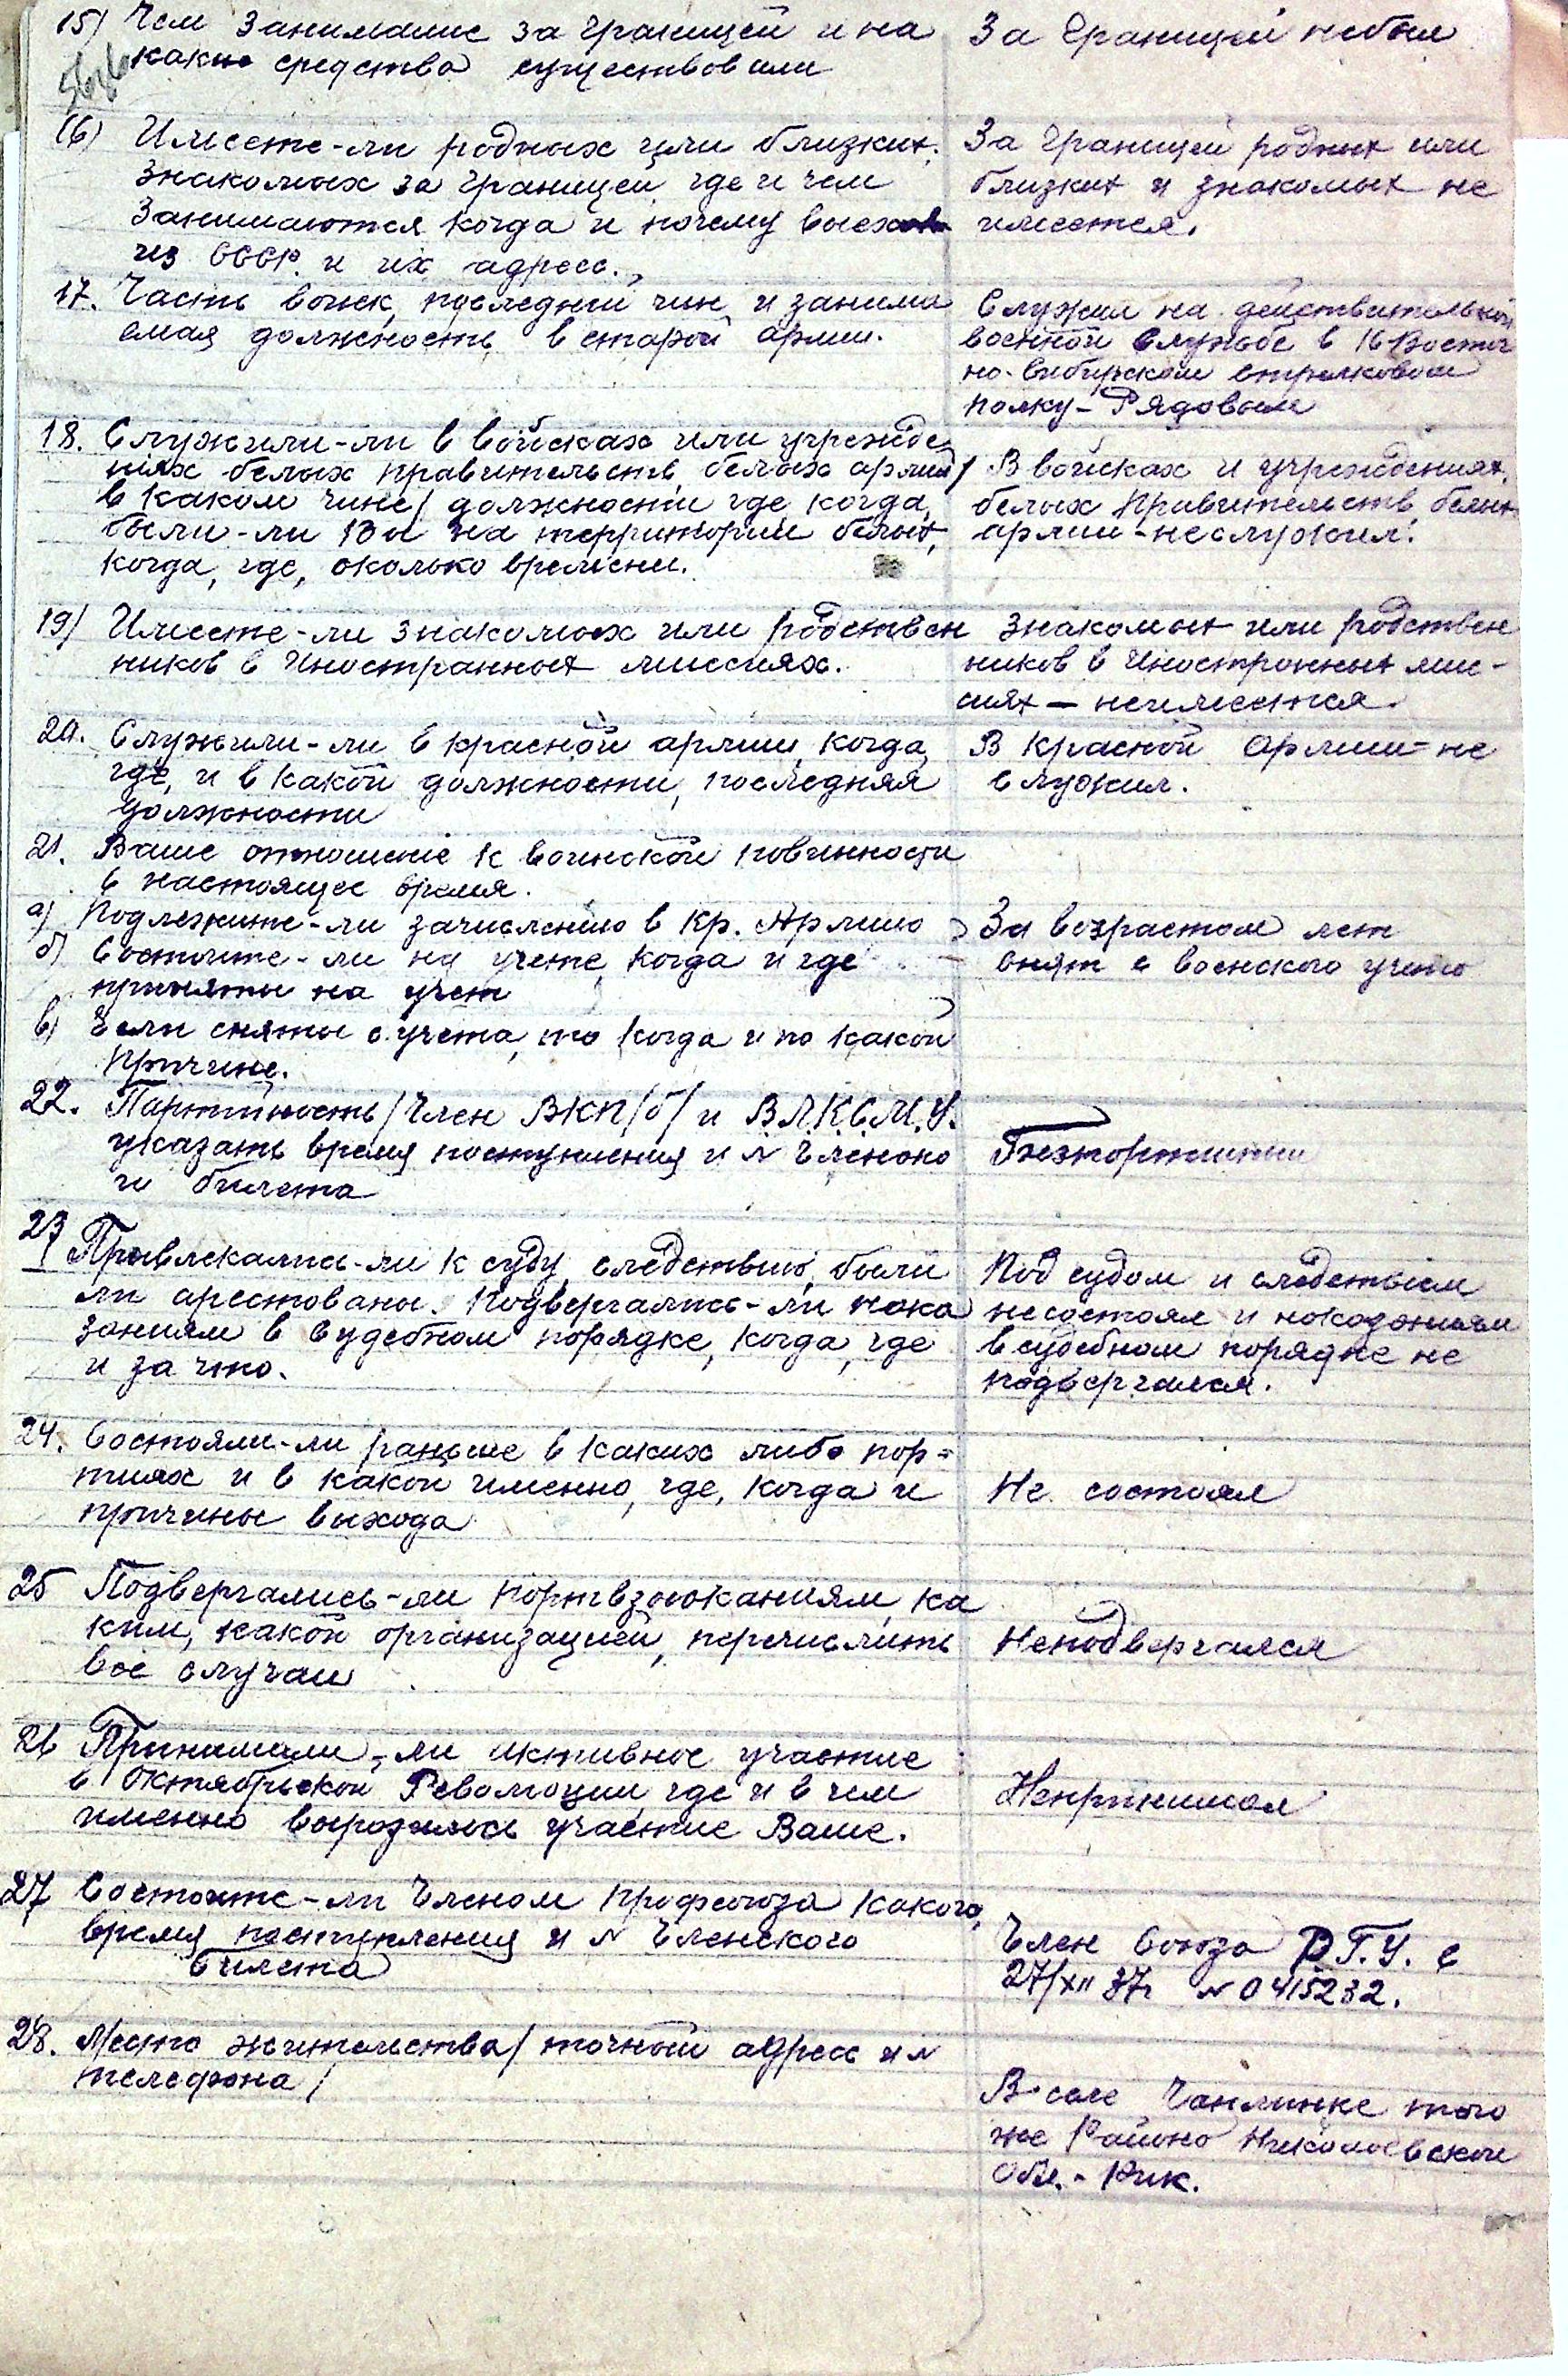 15) Чем занимались за границей и на
какие средства существовали
За границей небыл
16) Имеете-ли родных или близких,
знакомых за границей, где и чем
занимаются когда и почему выехали
из СССР. и их адресс.
За границей родных или
близких и знакомых не
имеется.
17. Часть войск, последний чин и занима
емая должность в старой армии.
Служил на действительной
военной службе в 16 Восточ
но-Сибирском стрелковом
полку - Рядовым
18. Служили-ли в войсках или учрежде
ниях белых правительств, белых армий /
в каком чине / должности где когда,
были-ли Вы на территории белых,
когда, где, сколько времени.
В войсках и учреждениях,
белых Правительств, белых
армии - неслужил.
19) Имеете-ли знакомых или родствен
ников в Иностранных миссиях.
Знакомых или родствен
ников в Иностранных мис-
сиях — неимеется.
20. Служили-ли в красной армии, когда,
где, и в какой должности, последняя
должности
В Красной Армии - не
служил.
21. Ваше отношение к воинской повинности
в настоящее время.
а) Подлежите-ли зачислению в Кр. Армию
б) Состоите-ли на учете, когда и где
приняты на учет
в) Если сняты с учета, то когда и по какой
причине.
За возрастом лет
снят с военского учета
22. Партийность / Член ВКП/б/ и В.Л.К.С.М.У.
указать время поступления и № Членско
го билета
Безпартийный
23) Привлекались-ли к суду, следствию, были
ли арестованы. Подвергались-ли нака
заниям в судебном порядке, когда, где
и за что.
Под судом и следствием
несостоял и наказаниям
в судебном порядке не
подвергался.
24. Состояли-ли раньше в каких либо пар-
тиях и в какой именно, где, когда и
причины выхода
Не состоял
25 Подвергались-ли партвзысканиям, ка
ким, какой организацией, перечислить
все случаи
Неподвергался
26 Принимали-ли активное участие
в Октябрьской Революции, где и в чем
именно выразилось участие Ваше.
Непринимал
27 Состоите-ли Членом профсоюза какого,
время поступления и № Членского
билета
Член Союза Р.Г.У. с
27/XII 37г № 0415232.
28. Место жительства / точный адрес и №
телефона /
В селе Чаплинке того
же Района Николаевской
Обл. - Рик.